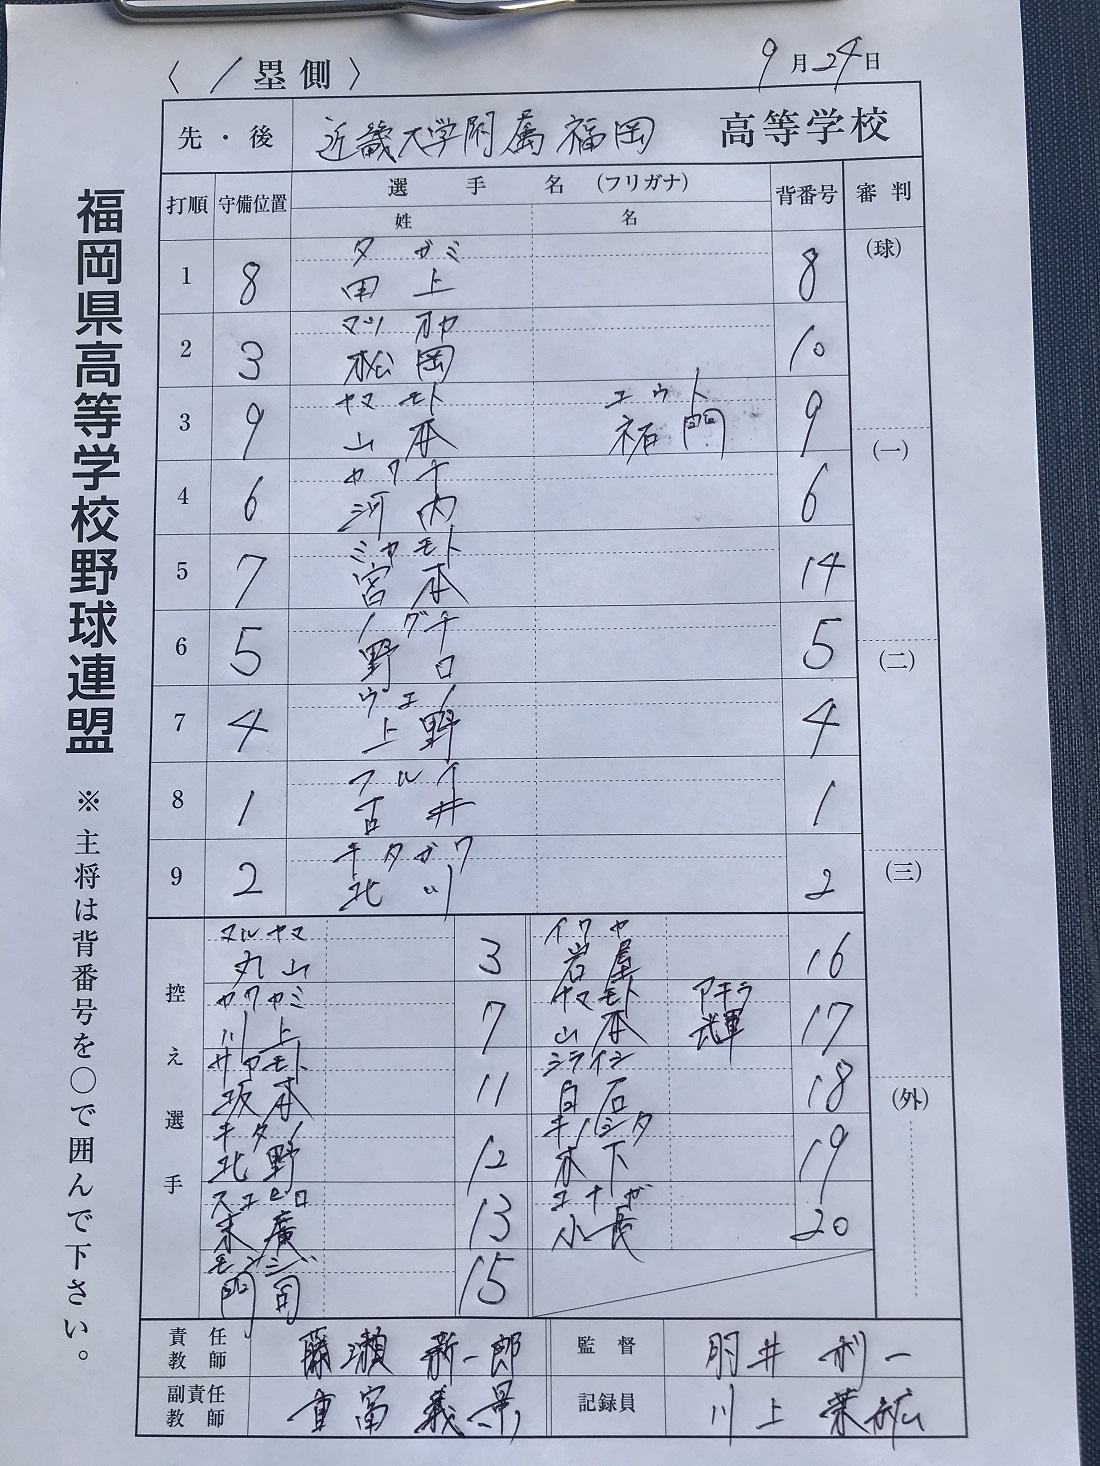 〈 / 塁側 〉
9月24日
先・後 近畿大学附属福岡 高等学校
打順 守備位置 選手名 (フリガナ) 背番号 審判
姓 名
(球)
タガミ
1 8 田上 8
マツオカ
2 3 松岡 10
ヤマモト ユウト
3 9 山本 祐門 9
(一)
カワチ
4 6 河内 6
ミヤモト
5 7 宮本 14
ノグチ
6 5 野口 5
(二)
ウエノ
7 4 上野 4
フルイ
8 1 古井 1
キタガワ
9 2 北川 2
(三)
控え選手
マルヤマ
丸山 3
カワカミ
川上 7
サカモト
坂本 11
キタノ
北野 12
スエヒロ
末廣 13
モンジ
門司 15
イワヤ
岩屋 16
ヤマモト アキラ
山本 輝 17
シライシ
白石 18
キノシタ
木下 19
コナガ
小長 20
(外)
責任教師 藤瀬 新一郎
監督 一
副責任教師 重富 義
記録員 川上
福岡県高等学校野球連盟
※主将は背番号を○で囲んで下さい。